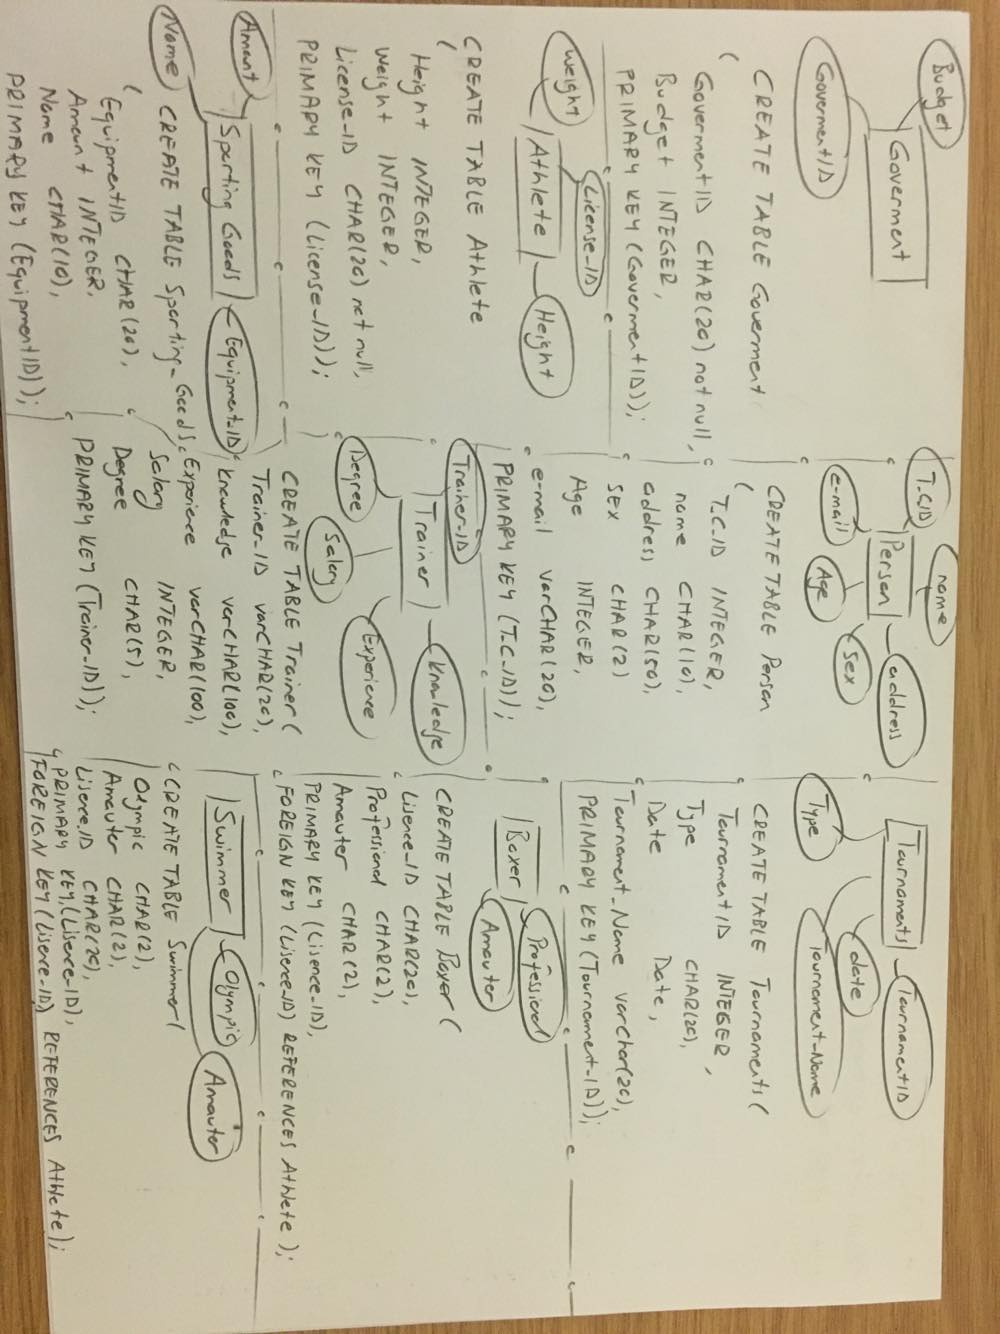 Budget
Goverment
GovermentID
CREATE TABLE Goverment
(
GovermentID CHAR(20) not null,
Budget INTEGER,
PRIMARY KEY (GovermentID));
License_ID
weight
Athlete
Height
CREATE TABLE Athlete
(
Height INTEGER,
Weight INTEGER,
License_ID CHAR(20) not null,
PRIMARY KEY (License_ID));
Amount
Sporting Goods
EquipmentID
Name
CREATE TABLE Sporting_Goods
(
EquipmentID CHAR(20),
Amount INTEGER,
Name CHAR(10),
PRIMARY KEY (EquipmentID));
T.C.ID
name
Person
address
e-mail
Age
Sex
CREATE TABLE Person
(
T.C._ID INTEGER,
name CHAR(10),
address CHAR(50),
SEX CHAR(2)
Age INTEGER,
e-mail varCHAR(20),
PRIMARY KEY (T.C_ID));
Trainer_ID
Trainer
knowledge
Degree
Salary
Experience
CREATE TABLE Trainer(
Trainer_ID varCHAR(20),
knowledge varCHAR(100),
Experience varCHAR(100),
Salary INTEGER,
Degree CHAR(5),
PRIMARY KEY (Trainer_ID));
Tournaments
TournamentID
Type
date
Tournament_Name
CREATE TABLE Tournaments(
TournamentID INTEGER,
Type CHAR(20),
Date Date,
Tournament_Name varchar(20),
PRIMARY KEY (Tournament_ID));
Boxer
Professional
Amauter
CREATE TABLE Boxer(
Lisence_ID CHAR(20),
Professional CHAR(2),
Amauter CHAR(2),
PRIMARY KEY (Lisence_ID),
FOREIGN KEY (Lisence_ID) REFERENCES Athlete);
Swimmer
Olympic
Amauter
CREATE TABLE Swimmer(
Olympic CHAR(2),
Amauter CHAR(2),
Lisence_ID CHAR(20),
PRIMARY KEY (Lisence_ID),
FOREIGN KEY (Lisence_ID) REFERENCES Athlete);